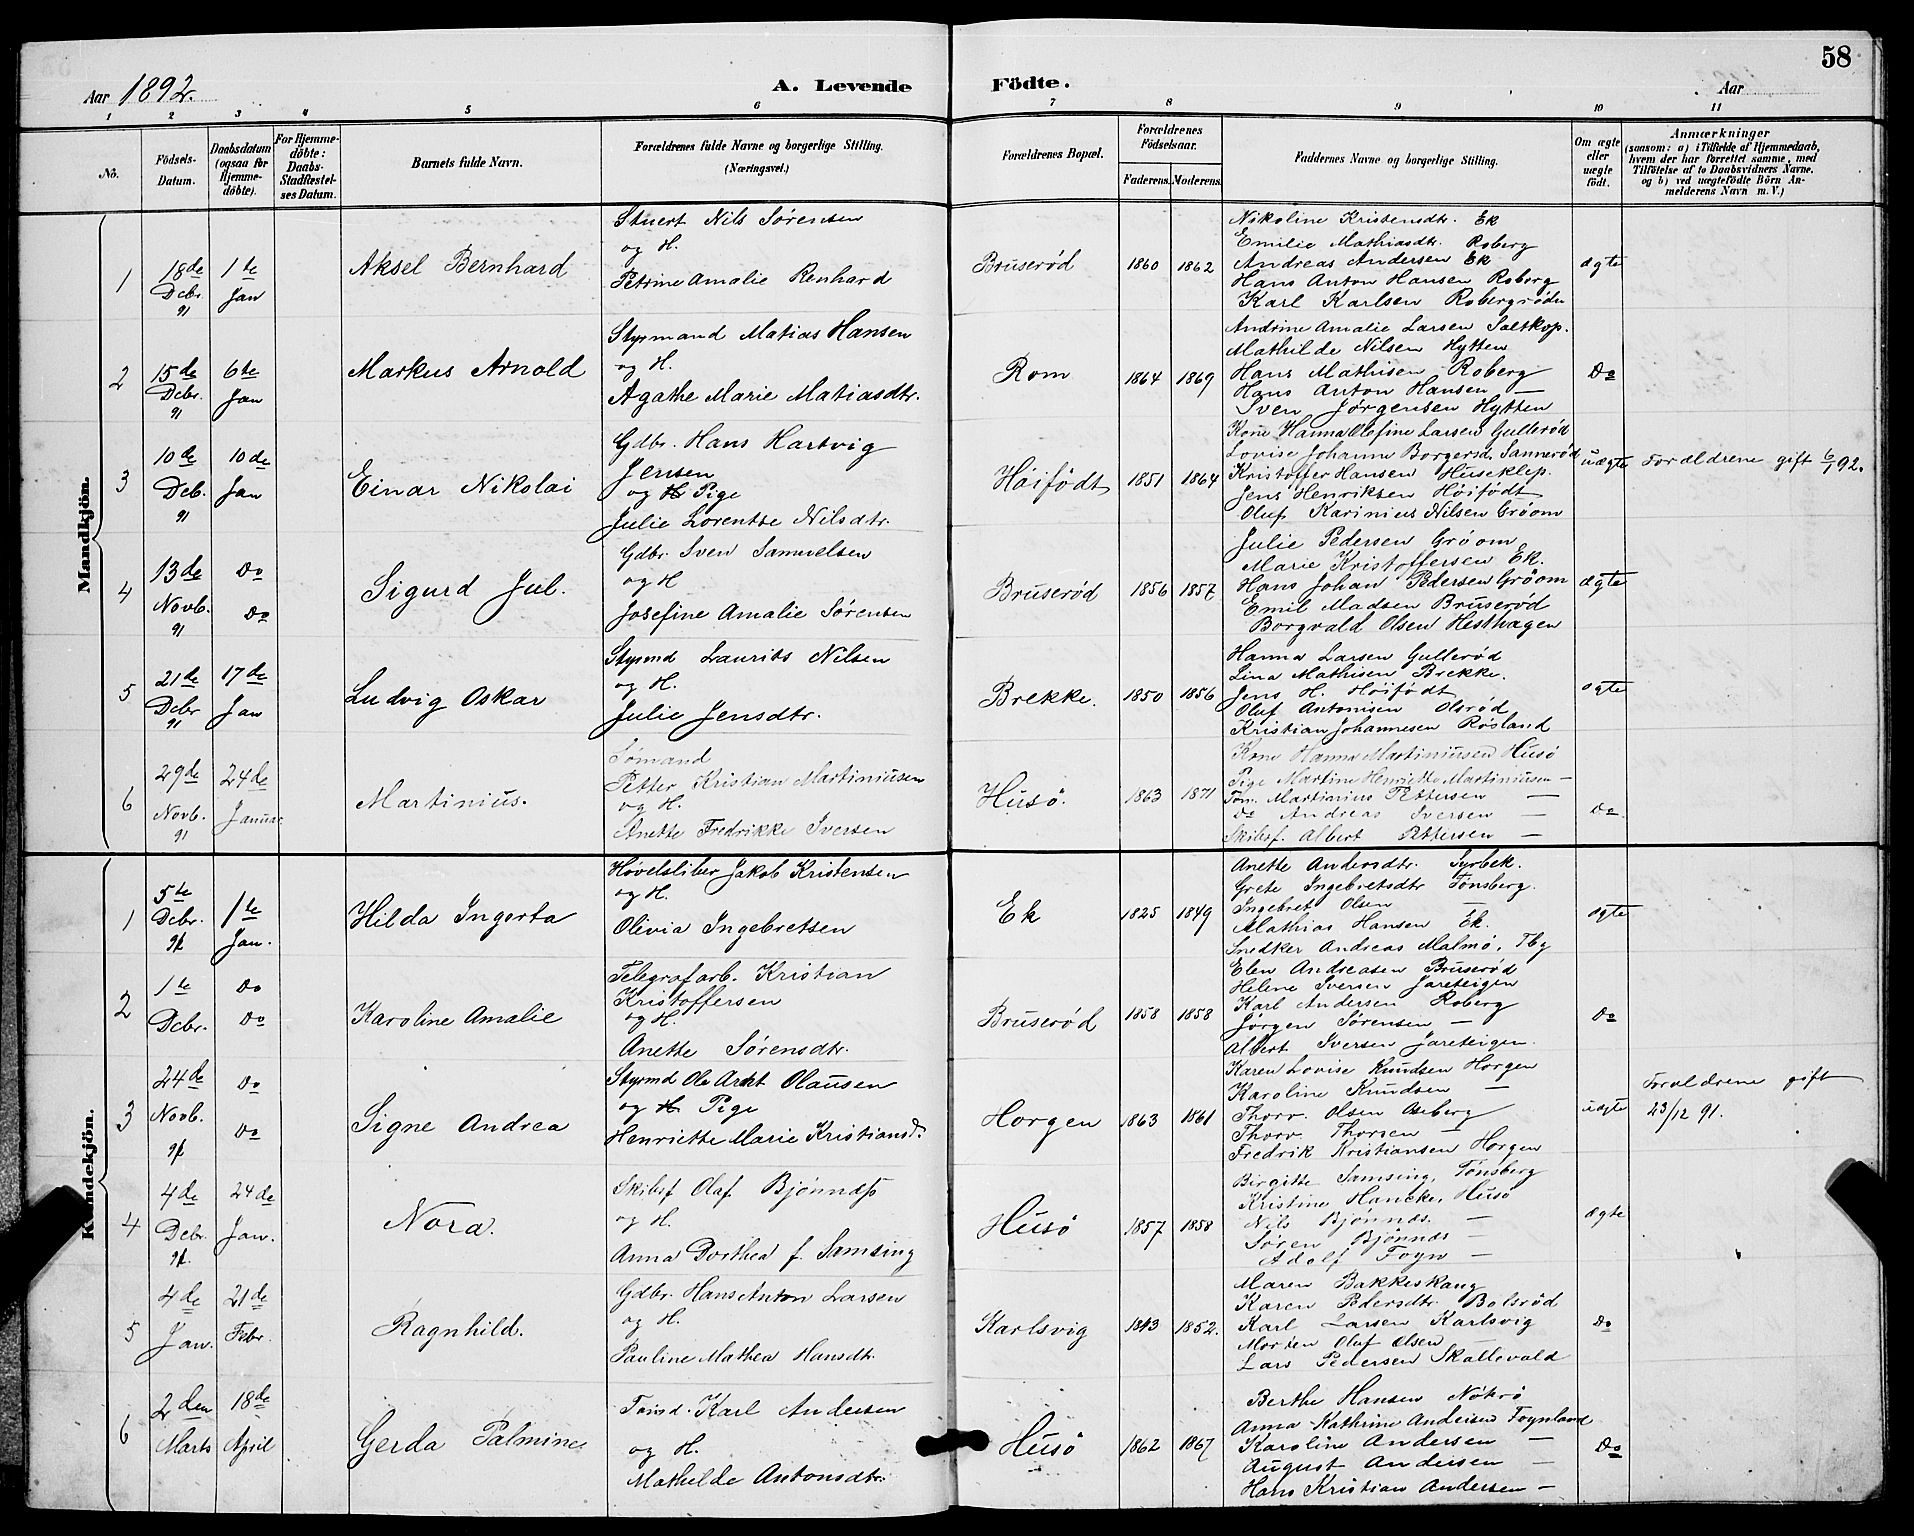 58
Aar 1892.
A. Levende Födte.
Aar
1 2 3 4 5 6 7 8 9 10 11
No.
Födsels-Datum.
Daabsdatum (ogsaa for Hjemme-döbte).
For Hjemme-döbte: Daabs-Stadfæstel-ses Datum.
Barnets fulde Navn.
Forældrenes fulde Navne og borgerlige Stilling.
(Næringsvei.)
Forældrenes Bopæl.
Forældrenes Födselsaar.
Faderens. Moderens.
Faddernes Navne og borgerlige Stilling.
Om ægte eller uægte födt.
Anmærkninger
(saasom: a) i Tilfælde af Hjemmedaab, hvem der har forrettet samme, med Tilföielse af to Daabsvidners Navne. og b) ved uægtefödte Börn An-melderens Navn m. V.)
Mandkjön.
1
18de Debr. 91
1te Jan
Aksel Bernhard
Stuert Nils Sørensen
og H.
Petrine Amalie Renhard
Bruserød
1860 1862
Nikoline Kristensdtr. Ek
Emilie Mathiasdtr. Roberg
Andreas Andersen Ek
Hans Anton Hansen Roberg
Karl Karlsen Robergrødn
ægte
2
15de Debr. 91
6te Jan
Markus Arnold
Styrmand Matias Hansen
og H.
Agathe Marie Matiasdtr.
Rom
1864 1869
Andrine Amalie Larsen Saltkop.
Mathilde Nilsen Hytten
Hans Mathisen Roberg
Hans Anton Hansen —
Sven Jørgensen Hytten
Do
3
10de Deb. 91
10de Jan
Einar Nikolai
Gdbr. Hans Hartvig
Jensen
og H Pige
Julie Lorentse Nilsdtr.
Höifödt
1851 1864
Kone Hanna Olefine Larsen Gullerød
Lovise Johanne Borgersd. Sannerød
Kristoffer Hansen Huseklep.
Jens Henriksen Höifödt
Oluf Karinius Nilsen Gröom
uægte
Forældrene gift 6/1 92.
4
13de Novb. 91
Do Do
Sigurd Jul.
Gdbr. Sven Samuelsen
og H
Josefine Amalie Sørensen
Bruserød
1856 1857
Julie Pedersen Gröom
Marie Kristoffersen Ek.
Hans Johan Pedersen Gröom
Emil Madsen Bruserød
Borgvald Olsen Hesthagen
ægte
5
21de Debr 91
17de Jan
Ludvig Oskar
Styrmd Laurits Nilsen
og H.
Julie Jensdtr.
Brekke.
1850 1856
Hanna Larsen Gullerød
Lina Mathisen Brekke.
Jens H. Höifödt
Oluf Antonisen Olsrød
Kristian Johannesen Røsland
ægte
6
29de Novb. 91
24de Januar
Martinius.
Sømand
Petter Kristian Martiniusen
og H.
Anette Fredrikke Iversen
Husö.
1863 1871
Kone Hanna Martiniusen Husö
Pige Martine Henriette Martiniusen —
Tøm. Martinius Pettersen —
Do Andreas Iversen —
Skibsf. Albert Pettersen —
Do
Kvindekjön.
1
5te Debr. 91
1te Jan.
Hilda Ingerta
Høvelsliber Jakob Kristensen
og H.
Olivia Ingebretsen
Ek
1825 1849
Anette Andersdtr. Syrbek.
Grete Ingebretsdtr Tønsberg.
Ingebret Olsen —
Mathias Hansen Ek.
Snedker Andreas Malmö, Tbg
ægte
2
1te Debr.
Do Do
Karoline Amalie
Telegrafarb. Kristian
Kristoffersen
og H.
Anette Sørensdtr.
Bruserød
1858 1858
Elen Andreasen Bruserød
Helene Iversen Jareteigen
Karl Andersen Roberg
Jørgen Sørensen —
Albert Iversen Jareteigen.
Do
3
24de Novb. 91
Do Do
Signe Andrea
Styrmd Ole Arnt Olausen
og H. Pige
Henriette Marie Kristiansd.
Horgen
1863 1861
Karen Lovise Knudsen Horgen
Karoline Knudsen —
Thorv. Olsen Oseberg
Thorv. Thorsen —
Fredrik Kristiansen Horgen
uægte
Forældrene gift
23/12 91.
4
4de Debr. 91.
24de Jan.
Nora.
Skibsf Olaf Bjönnæs
og H.
Anna Dorthea f. Samsing
Husö
1857 1858
Birgitte Samsing, Tønsberg
Kristine Hancke, Husö
Nils Bjönnæs. —
Søren Bjönnæs —
Adolf Foyn —
ægte
5
4de Jan.
21de Febr.
Ragnhild.
Gdbr. Hans Anton Larsen
og H.
Pauline Mathea Hansdtr.
Karlsvig
1843 1852.
Maren Bakkeskaug
Karen Pedersdtr. Bolsrød
Karl Larsen Karlsvig
Morten Oluf Olsen —
Lars Pedersen Skallevald
Do
6
2den Marts
18de April
Gerda Palmine
Tømd. Karl Andersen
og H.
Mathilde Antonsdtr.
Husö
1862 1867
Berthe Hansen Nötrö
Anna Kathrine Andersen Foynland
Karoline Andersen —
August Andersen —
Hans Kristian Andersen —
Do